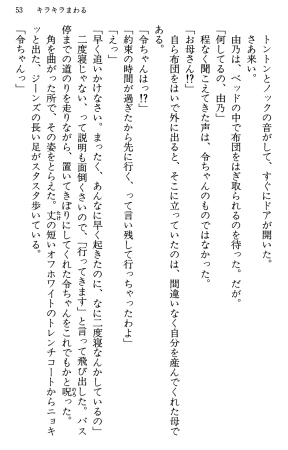 53　キラキラまわる
トントンとノックの音がして、すぐにドアが開いた。
さあ来い。
由乃は、ベッドの中で布団をはぎ取られるのを待った。だが。
「何してるの、由乃」
程なく聞こえてきた声は、令ちゃんのものではなかった。
「お母さん!?」
自ら布団をはいで外に出ると、そこに立っていたのは、間違いなく自分を産んでくれた母で
ある。
「令ちゃんはっ!?」
「約束の時間が過ぎたから先に行く、って言い残して行っちゃったわよ」
「えっ」
「早く追いかけなさい。まったく、あんなに早く起きたのに、なに二度寝なんかしているの」
二度寝じゃない、って説明も面倒くさいので、「行ってきます」と言って飛び出した。バス
停までの道のりを走りながら、置いてきぼりにしてくれた令ちゃんをこれでもかと呪った。
角を曲がった所で、その姿をとらえた。丈の短いオフホワイトのトレンチコートからニョキ
ッと出た、ジーンズの長い足がスタスタ歩いている。
「令ちゃんっ」